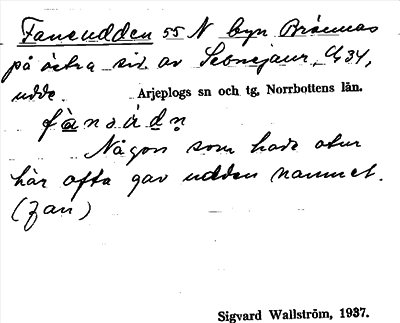 Fanεudden 55 N byn Brännas
på östra sid. av Sebnejaur, G 34,
udde.
Arjeplogs sn och tg, Norrbottens län.
fànsádn̥
Någon som hade otur
här ofta gav udden namnet.
(Fan)
Sigvard Wallström, 1937.